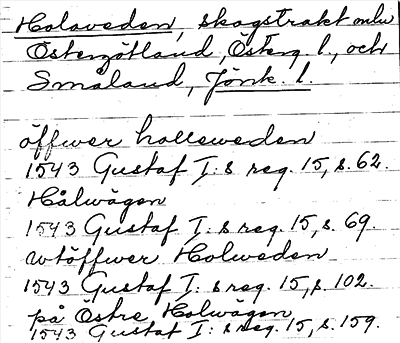 Holaveden, skogstrakt mlw
Östergötland, Österg. l., och
Småland, Jönk. l.
öffwer hollesweden
1543 Gustaf I:s reg. 15, s. 62.
Hålwägen
1543 Gustaf I:s reg. 15, s. 69.
wtöffwer Holweden
1543 Gustaf I:s reg. 15, s. 102.
på Östre Holwägen
1543 Gustaf I:s reg. 15, s. 159.